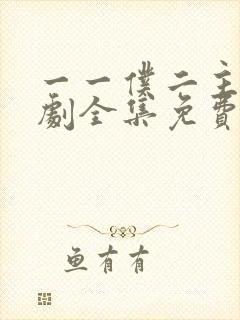 一一僕二主
劇全集免費
鱼有有